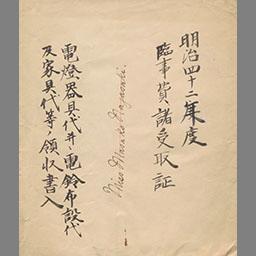 明治四十二年度
臨事費、諸受取証
Miss Masako Nagasaki.
電燈器具代并、電鈴布設代
及家具代等ノ領収書入